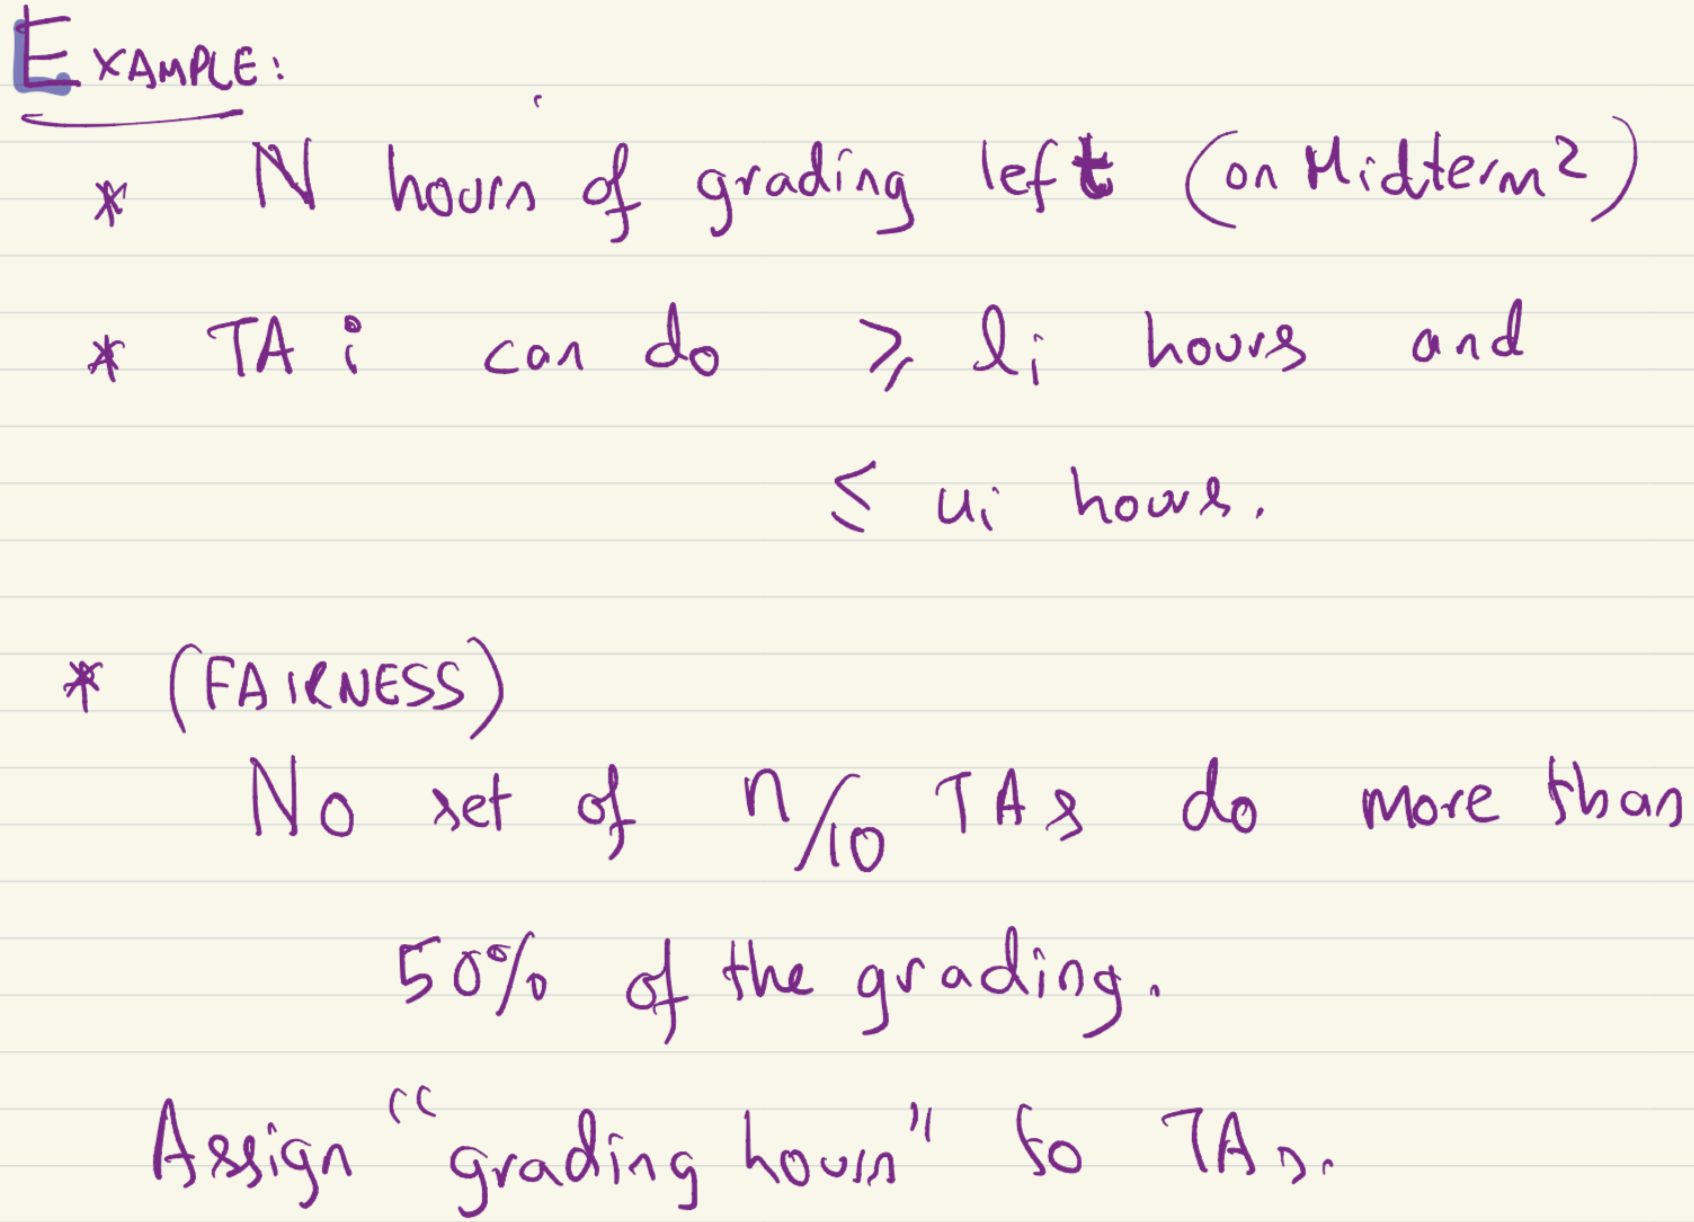 EXAMPLE:
* N hours of grading left (on Midterm 2)
* TA i can do ⩾ li hours and
≤ ui hours.
* (FAIRNESS)
No set of n/10 TAs do more than
50% of the grading.
Assign "grading hours" to TAs.